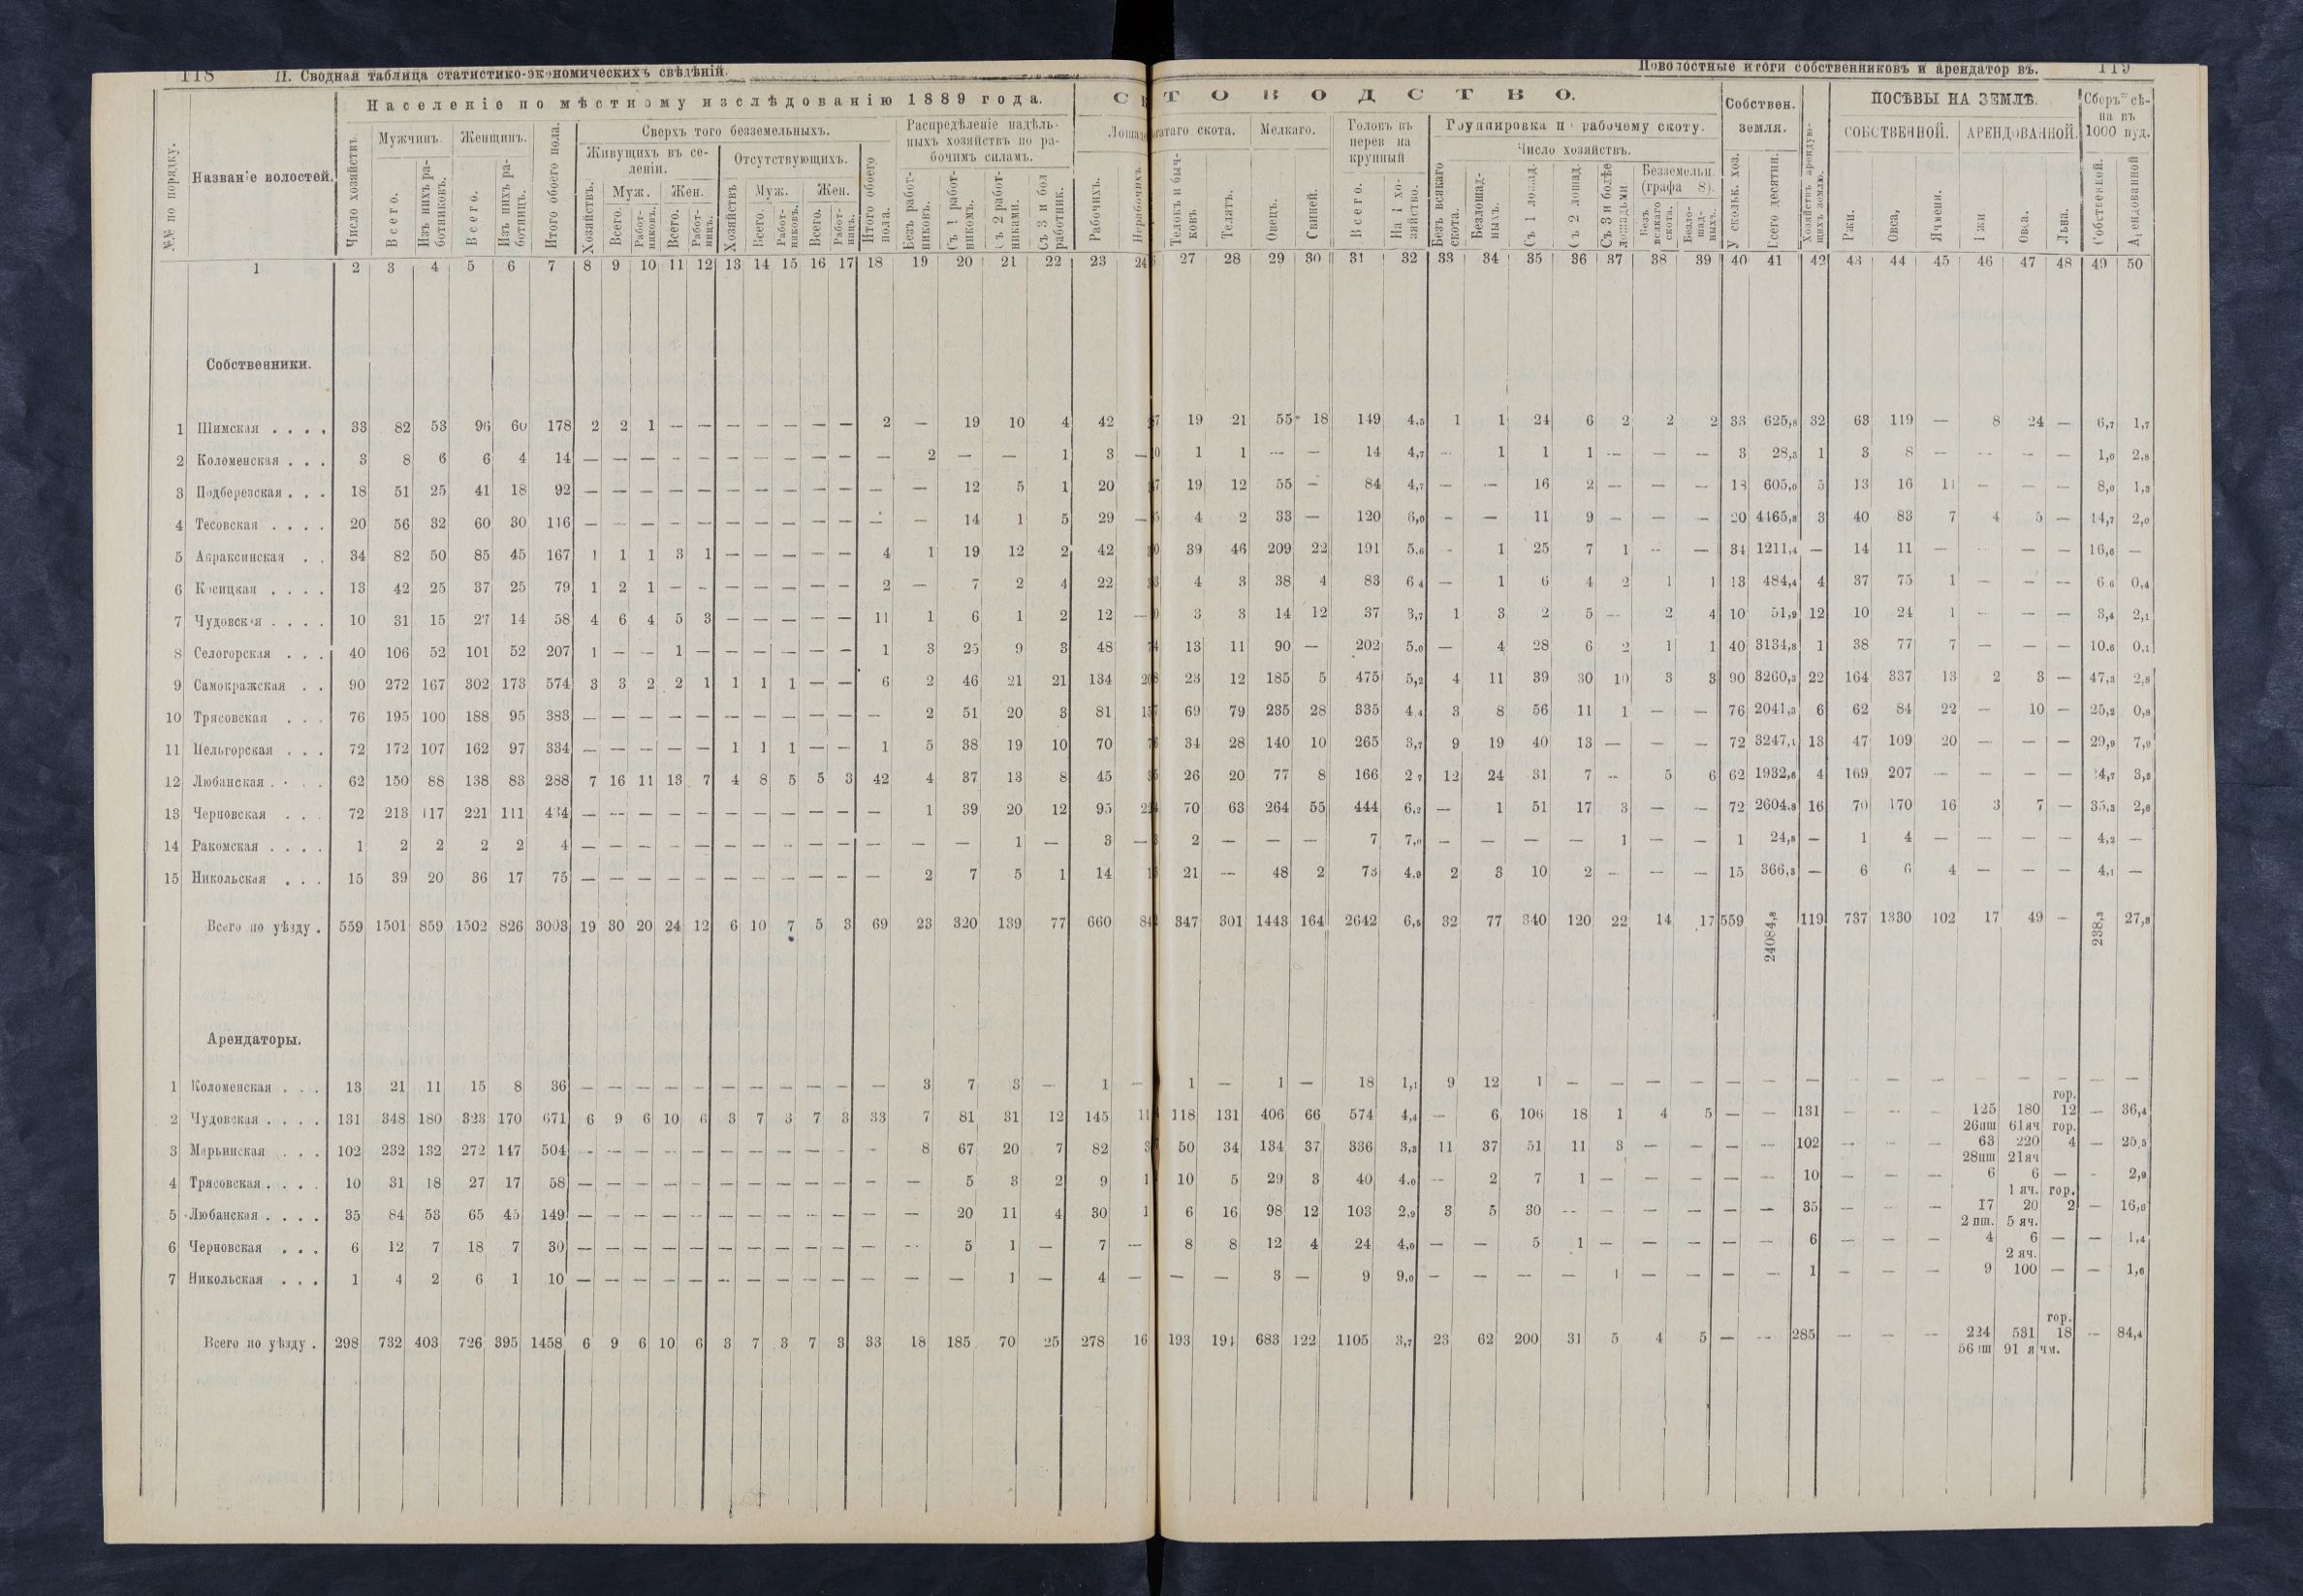 118 II. Сводная таблица статистико-экономическихъ свѣдѣній.
Поволостные итоги собственниковъ и арендаторовъ. 119
Населеніе по мѣстному изслѣдованію 1889 года.
ТОВОДСТВО.
Собствен. земля.
ПОСѢВЫ НА ЗЕМЛѢ.
Сборъ сѣна въ 1000 пуд.
№№ по порядку.
Названіе волостей.
Число хозяйствъ.
Мужчинъ. Женщинъ.
Всего. Изъ нихъ работниковъ. Всего. Изъ нихъ работницъ.
Итого обоего пола.
Сверхъ того безземельныхъ.
Живущихъ въ селеніи. Отсутствующихъ.
Хозяйствъ. Муж. Жен. Хозяйствъ Муж. Жен.
Всего. Работниковъ. Всего. Работницъ. Всего. Работниковъ. Всего. Работницъ.
Итого обоего пола.
Распредѣленіе надѣльныхъ хозяйствъ по рабочимъ силамъ.
Безъ работниковъ. Съ 1 работникомъ. Съ 2 работниками. Съ 3 и бол работник.
Рабочихъ. Нерабочихъ
гатаго скота. Мелкаго.
Телокъ и бычковъ. Телятъ. Овецъ. Свиней.
Головъ въ перев на крупный
Всего. На 1 хозяйство.
Группировка по рабочему скоту.
Число хозяйствъ.
Безъ всякаго скота. Безлошадныхъ. Съ 1 лошад. Съ 2 лошад. Съ 3 и болѣе лошадьми.
Безземельн. (графа 8).
Безъ всякаго скота. Безлошадныхъ.
У скольк. хоз. Всего десятин.
Хозяйствъ арендующихъ землю.
СОБСТВЕННОЙ. АРЕНДОВАННОЙ.
Ржи. Овса. Ячменя. Ржи Овса. Льна.
Собственной. Арендованной
1 2 3 4 5 6 7 8 9 10 11 12 13 14 15 16 17 18 19 20 21 22 23 24 27 28 29 30 31 32 33 34 35 36 37 38 39 40 41 42 43 44 45 46 47 48 49 50
Собственники.
1 Шимская . . . . 33 82 53 96 60 178 2 2 1 — — — — — — — 2 — 19 10 4 42 7 19 21 55 18 149 4,5 1 1 24 6 2 2 2 33 625,8 32 63 119 — 8 24 — 6,7 1,7
2 Коломенская . . . 3 8 6 6 4 14 — — — — — — — — — — — 2 — — 1 3 — 1 1 — — 14 4,7 — 1 1 1 — — — 3 28,5 1 3 8 — — — — 1,0 2,8
3 Подберезская . . . 18 51 25 41 18 92 — — — — — — — — — — — — 12 5 1 20 7 19 12 55 — 84 4,7 — — 16 2 — — — 18 605,0 5 13 16 11 — — — 8,0 1,3
4 Тесовская . . . . 20 56 32 60 30 116 — — — — — — — — — — — — 14 1 5 29 — 4 2 33 — 120 6,0 — — 11 9 — — — 20 4465,8 3 40 83 7 4 5 — 14,7 2,0
5 Апраксинская . . 34 82 50 85 45 167 1 1 1 3 1 — — — — — 4 1 19 12 2 42 0 39 46 209 22 191 5,6 - 1 25 7 1 — — 34 1211,4 — 14 11 — — — — 16,6 —
6 Косицкая . . . . 13 42 25 37 25 79 1 2 1 — — — — — — — 2 — 7 2 4 22 3 4 3 38 4 83 6,4 — 1 6 4 2 1 1 13 484,4 4 37 75 1 — — — 6,6 0,4
7 Чудовская . . . . 10 31 15 27 14 58 4 6 4 5 3 — — — — — 11 1 6 1 2 12 — 3 3 14 12 37 3,7 1 3 2 5 — 2 4 10 51,9 12 10 24 1 — — — 3,4 2,1
8 Селогорская . . . 40 106 52 101 52 207 1 — — 1 — — — — — — 1 3 25 9 3 48 4 13 11 90 — 202 5,0 — 4 28 6 2 1 1 40 3134,8 1 38 77 7 — — — 10,6 0,1
9 Самокражская . . 90 272 167 302 173 574 3 3 2 2 1 1 1 1 — — 6 2 46 21 21 134 23 12 185 5 475 5,2 4 11 39 30 10 3 3 90 3260,3 22 164 337 13 2 3 — 47,3 2,8
10 Трясовская . . . 76 195 100 188 95 383 — — — — — — — — — — — 2 51 20 3 81 69 79 235 28 335 4,4 3 8 56 11 1 — — 76 2041,3 6 62 84 22 — 10 — 25,2 0,8
11 Пельгорская . . . 72 172 107 162 97 334 — — — — — 1 1 1 — — 1 5 38 19 10 70 34 28 140 10 265 3,7 9 19 40 13 — — — 72 3247,1 13 47 109 20 — — — 29,9 7,9
12 Любанская . . . . 62 150 88 138 83 288 7 16 11 13 7 4 8 5 5 3 42 4 37 13 8 45 26 20 77 8 166 2,7 12 24 31 7 — 5 6 62 1932,6 4 169 207 — — — — 4,7 3,5
13 Черновская . . . 72 213 117 221 111 434 — — — — — — — — — — — 1 39 20 12 95 70 63 264 55 444 6,2 — 1 51 17 3 — — 72 2604,8 16 70 170 16 3 7 — 35,3 2,6
14 Ракомская . . . . 1 2 2 2 2 4 — — — — — — — — — — — — — 1 — 3 — 2 — — — 7 7,0 — — — — 1 — — 1 24,8 — 1 4 — — — — 4,2 —
15 Никольская . . . 15 39 20 36 17 75 — — — — — — — — — — — 2 7 5 1 14 21 — 48 2 73 4,9 2 3 10 2 — — — 15 366,3 — 6 6 4 — — — 4,1 —
Всего по уѣзду . 559 1501 859 1502 826 3003 19 30 20 24 12 6 10 7 5 3 69 23 320 139 77 660 347 301 1443 164 2642 6,5 32 77 340 120 22 14 17 559 24084,8 119 737 1330 102 17 49 — 238,3 27,8
Арендаторы.
1 Коломенская . . . 13 21 11 15 8 36 — — — — — — — — — — — 3 7 3 — 1 — 1 — 1 — 18 1,1 9 12 1 — — — — — — — — — — — — — — —
гор.
2 Чудовская . . . . 131 348 180 323 170 671 6 9 6 10 6 3 7 3 7 3 33 7 81 31 12 145 118 131 406 66 574 4,4 — 6 106 18 1 4 5 — — 131 — — — 125 180 12 — 36,4
26пш 61яч гор.
3 Марьинская . . . 102 232 132 272 147 504 — — — — — — — — — — — 8 67 20 7 82 50 34 134 37 336 3,3 11 37 51 11 3 — — — — 102 — — — 63 220 4 — 25,5
28пш 21яч
4 Трясовская . . . . 10 31 18 27 17 58 — — — — — — — — — — — — 5 3 2 9 1 10 5 29 3 40 4,0 — 2 7 1 — — — — — 10 — — — 6 6 — - 2,9
1 яч. гор.
5 Любанская . . . . 35 84 53 65 45 149 — — — — — — — — — — — — 20 11 4 30 1 6 16 98 12 103 2,9 3 5 30 — — — — — — 35 — — — 17 20 2 — 16,6
2 пш. 5 яч.
6 Черновская . . . 6 12 7 18 7 30 — — — — — — — — — — — — 5 1 — 7 — 8 8 12 4 24 4,0 — — 5 1 — — — — — 6 — — — 4 6 — — 1,4
2 яч.
7 Никольская . . . 1 4 2 6 1 10 — — — — — — — — — — — — — 1 — 4 — — — 3 — 9 9,0 — — — — 1 — — — — 1 — — — 9 100 — — 1,6
гор.
Всего по уѣзду . 298 732 403 726 395 1458 6 9 6 10 6 3 7 3 7 3 33 18 185 70 25 278 16 193 194 683 122 1105 3,7 23 62 200 31 5 4 5 — — 285 — — — 224 531 18 — 84,4
56 пш 91 ячм.